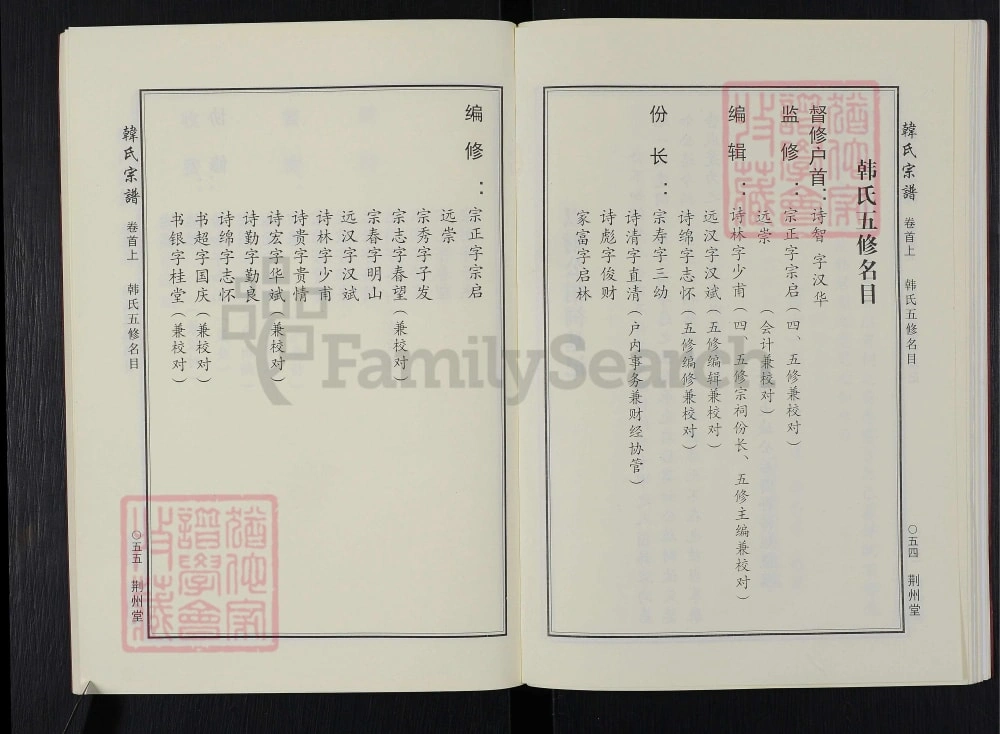 韩氏五修名目
督修户首：诗智 字汉华
监修：宗正字宗启（四、五修兼校对）
远崇（会计兼校对）
编辑：诗林字少甫（四、五修宗祠份长、五修主编兼校对）
远汉字汉斌（五修编辑兼校对）
诗绵字志怀（五修编修兼校对）
份长：宗寿字三幼
诗清字直清（户内事务兼财经协管）
诗彪字俊财
家富字启林
韓氏宗譜 卷首上 韩氏五修名目
〇五四 荆州堂
编修：宗正字宗启
远崇
宗秀字子发
宗志字春望（兼校对）
宗春字明山
远汉字汉斌
诗林字少甫
诗贵字贵情
诗宏字华斌（兼校对）
诗勤字勤良
诗绵字志怀
书超字国庆（兼校对）
书银字桂堂（兼校对）
韓氏宗譜 卷首上 韩氏五修名目
〇五五 荆州堂
FamilySearch